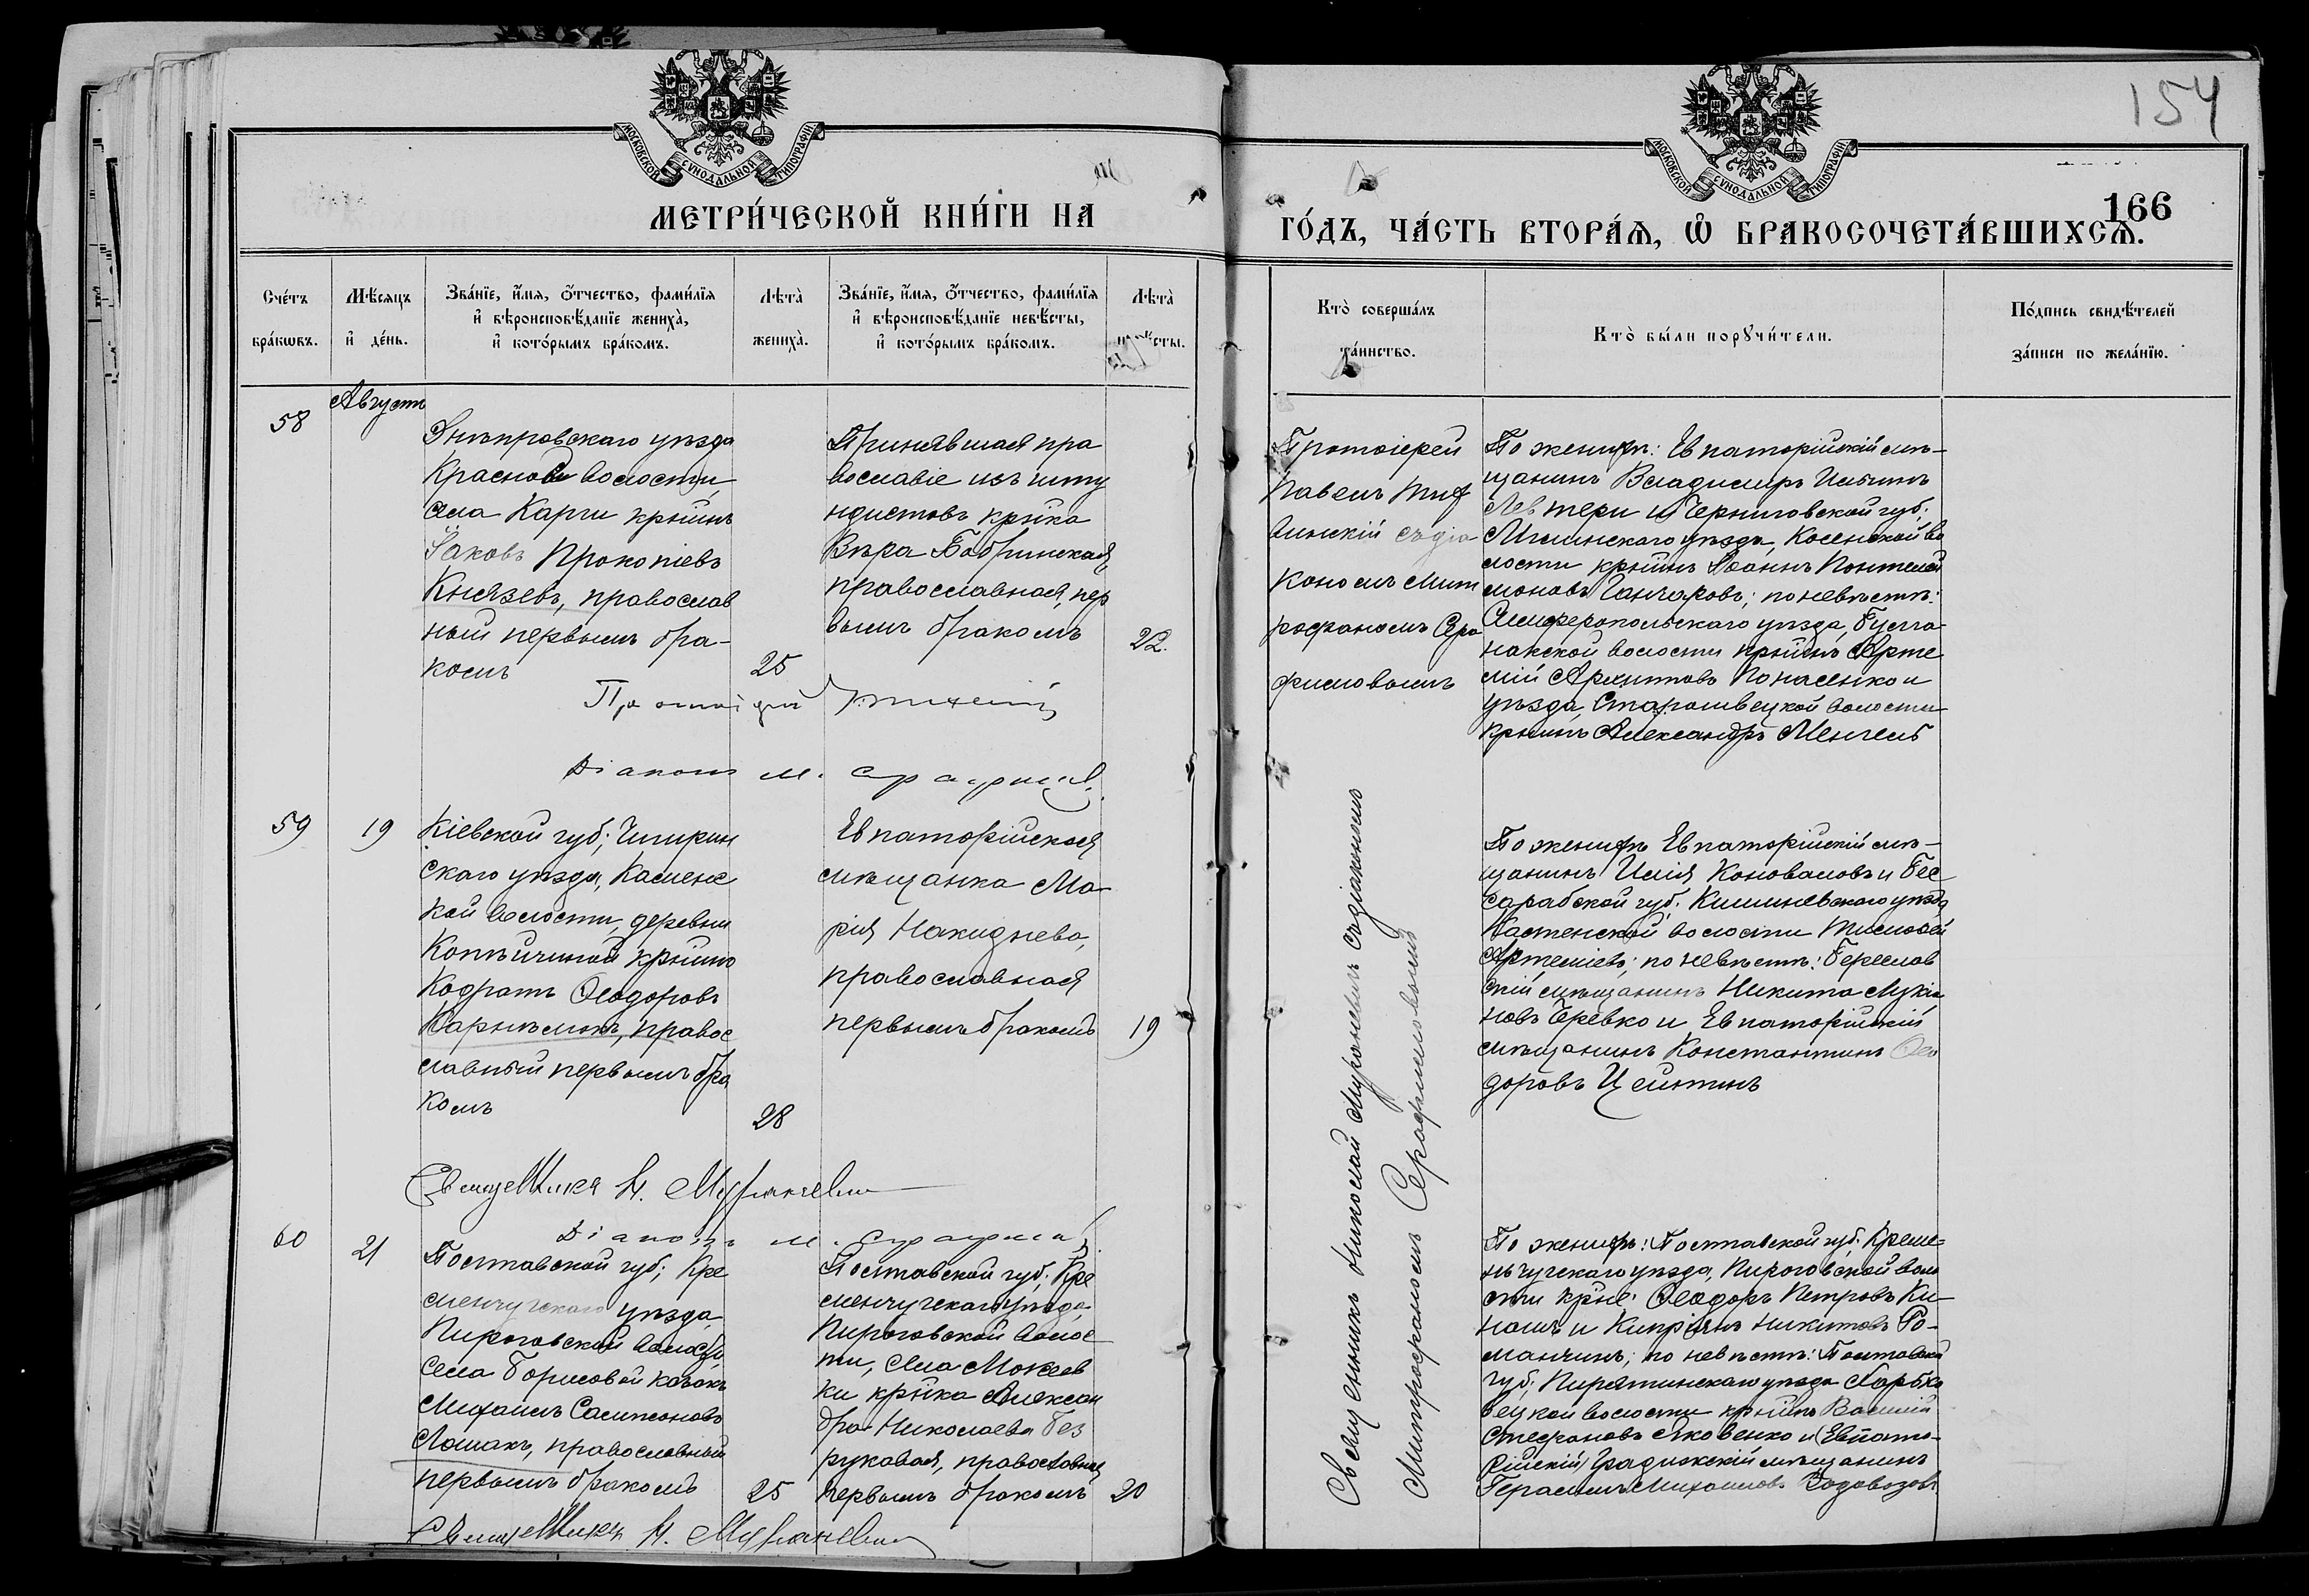 154
166
МОСКОВСКОЙ СѴНОДАЛЬНОЙ ТИПОГРАФІИ
МОСКОВСКОЙ СѴНОДАЛЬНОЙ ТИПОГРАФІИ
МЕТРИ́ЧЕСКОЙ КНИ́ГИ НА
ГО́ДЪ, ЧА́СТЬ ВТОРА́Ѧ, Ѡ҆ БРАКОСОЧЕТА́ВШИХСѦ.
Сче́тъ
бра́кѡвъ.
Мѣ́сяцъ
и҆ де́нь.
Зва́нїе, и҆́мя, ѻ҆́тчество, фами́лїя
и҆ вѣроисповѣ́данїе жениха̀,
и҆ кото́рымъ бра́комъ.
Лѣта̀
жениха̀.
Зва́нїе, и҆́мя, ѻ҆́тчество, фами́лїя
и҆ вѣроисповѣ́данїе невѣ́сты,
и҆ кото́рымъ бра́комъ.
Лѣта̀
невѣ́сты.
Кто̀ соверша́лъ
та́инство.
Кто̀ бы́ли порꙋчи́тели.
По́дпись свидѣ́телей
за́писи по жела́нїю.
58
Августъ
Днѣпровскаго уѣзда
Красной волости,
села Карги крѣинъ
Іаковъ Прокопіевъ
Князевъ, православ
ный первымъ бра-
комъ
25
Принявшая пра
вославіе изъ шту
ндистовъ крѣка
Вѣра Бобринская,
православная, пер
вымъ бракомъ
22.
Протоіерей
Діаконъ М.
Протоіерей
Павелъ
съ діа
кономъ Мит
рофаномъ Сера
фимовымъ
По женихѣ: Евпаторійскій мѣ-
щанинъ Владиміръ Ильинъ
Левтери и Черниговской губ.
Мглинскаго уѣзда, Косенской во
лости крѣинъ Іоаннъ Понтелей
моновъ Ганчаровъ; по невѣстѣ:
Симферопольскаго уѣзда,
волости крѣинъ Арте
мій Архиповъ Понасенко и
уѣзда, волости
крѣинъ Александръ Менчель
59
19
Кіевской губ; Чигирин
скаго уѣзда, Каменс
кой волости, деревни
крѣинъ
Кодратъ Ѳеодоровъ
правос
лавный первымъ бра
комъ
28
Евпаторійская
мѣщанка Ма-
рія Накиднева,
православная
первымъ бракомъ
19
Священникъ Н. Мураневичъ
Діаконъ М.
По женихѣ Евпаторійскій мѣ-
щанинъ Илія Коноваловъ и Бес
сарабской губ. Кишиневскаго уѣзда
волости Тимоѳей
Артеміевъ; по невѣстѣ: Береслав
скій мѣщанинъ Никита Лукіа
новъ Черевко и Евпаторійскій
мѣщанинъ Константинъ Ѳео
доровъ
Священникъ Николай Мураневичъ съ діакономъ
Митрофаномъ Серафимовымъ
60
21
Полтавской губ; Кре
менчугскаго уѣзда,
Пироговской волости
села Борисовой козакъ
Михаилъ Сампсоновъ
Лошакъ, православный
первымъ бракомъ
25
Полтавской губ; Кре
менчугскаго уѣзда,
Пироговской волос
ти, села Мокеев
ки крѣка Алексан
дра Николаева Без
рукавая, православная
первымъ бракомъ
20
Священникъ Н. Мураневичъ
По женихѣ: Полтавской губ. Креме-
нчугскаго уѣзда, Пироговской воло
сти крѣне: Ѳеодоръ Петровъ Ки
и Кипріянъ Никитовъ Ро-
манчинъ; по невѣстѣ: Полтавской
губ; Пирятинскаго уѣзда
волости крѣинъ Василій
Стефановъ Яковенко и (Евпато-
рійскій) Градижскій мѣщанинъ
Герасимъ Михаиловъ Водовозовъ